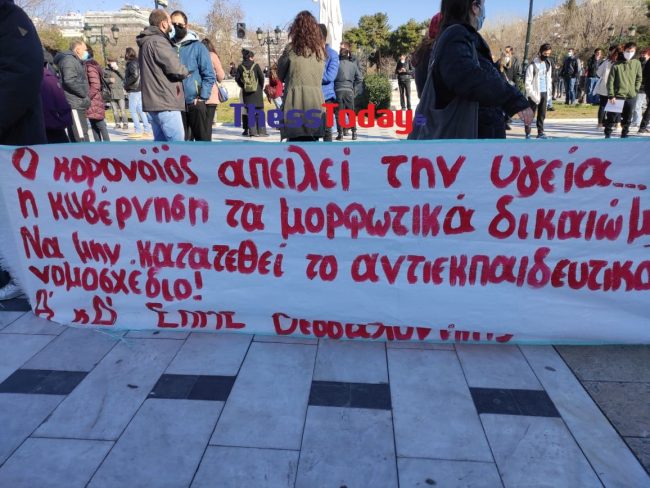 ThessToday.gr
Ο κορονόϊός απειλεί την υγεία...
η κυβέρνηση τα μορφωτικά δικαιώμ
Να μην κατατεθεί το αντιεκπαιδευτικό
νομοσχέδιο!
Α' κ Δ' ΣΕΠΕ Θεσσαλονίκης